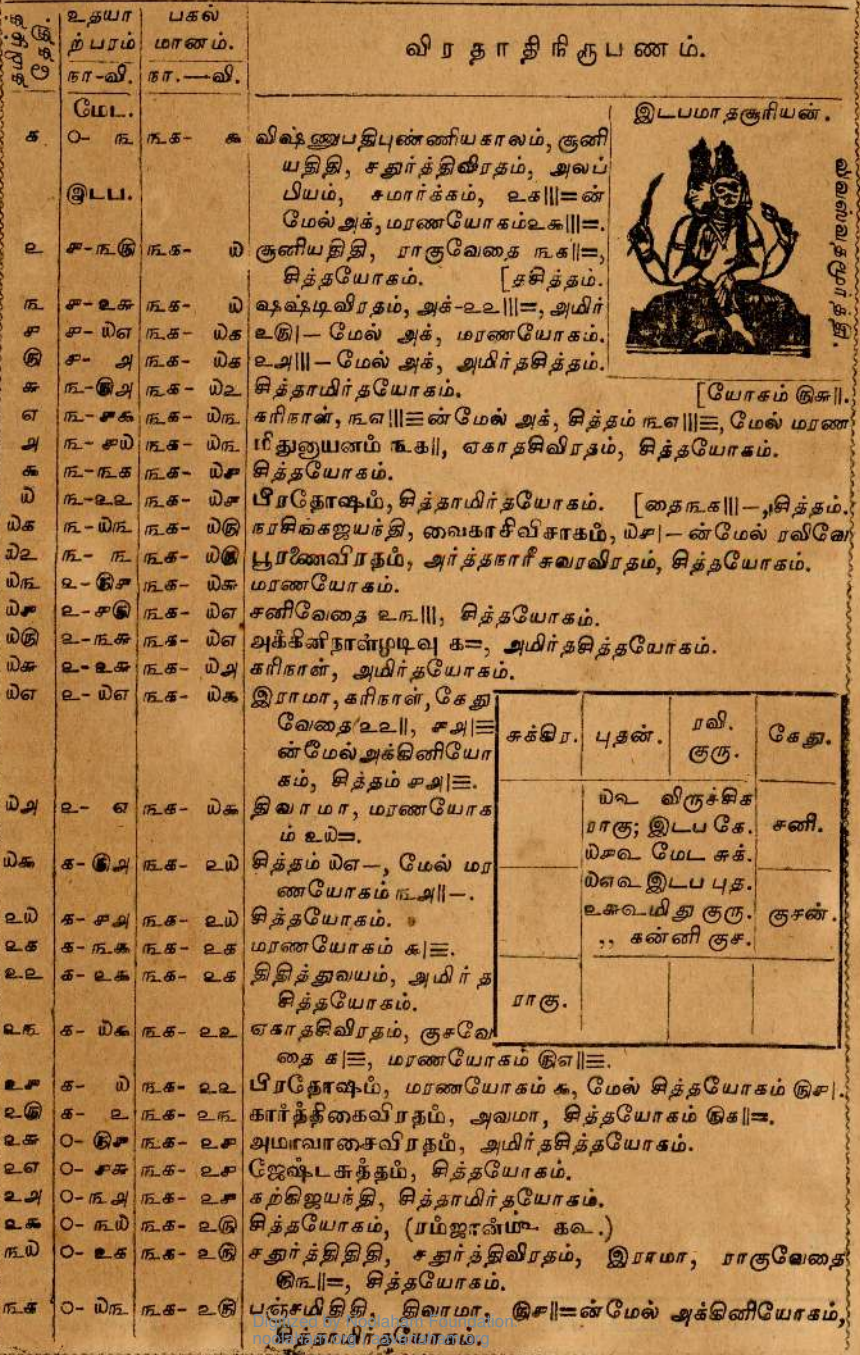 தமிழ்த் தேதி.
உதயா பகல்
ற்பரம் மானம்.
விரதாதிநிருபணம்.
நா-வி. நா.—வி.
மேட.
இடபமாதசூரியன்.
க ௦- ௩ ௩௧- ௯ விஷ்ணுபதிபுண்ணியகாலம், சூனி
யதிதி, சதுர்த்திவிரதம், அலப்
இடப. பியம், சமார்க்கம், ௨௧|||=ன்
மேல் அக், மரணயோகம் ௨௯|||=.
௨ ௪-௩௫ ௩௧- ௰ சூனியதிதி, ராகுவேதை ௩௧||=,
சித்தயோகம். [தசித்தம்.
௩ ௪-௨௬ ௩௧- ௰ ஷஷ்டிவிரதம், அக்-௨௨|||=, அமிர்
௪ ௪-௰௭ ௩௧- ௰௧ ௨௫|— மேல் அக், மரணயோகம்.
௫ ௪- ௮ ௩௧- ௰௧ ௨௮|||— மேல் அக், அமிர்தசித்தம்.
௬ ௩-௫௮ ௩௧- ௰௨ சித்தாமிர்தயோகம். [யோகம் ௫௬||.
௭ ௩-௪௯ ௩௧- ௰௩ கரிநாள், ௩௭|||≡ன்மேல் அக், சித்தம் ௩௭|||≡, மேல் மரண
௮ ௩-௪௰ ௩௧- ௰௩ மிதுனாயனம் ௩௧||, ஏகாதசிவிரதம், சித்தயோகம்.
௯ ௩-௩௧ ௩௧- ௰௪ சித்தயோகம்.
௰ ௩-௨௨ ௩௧- ௰௪ பிரதோஷம், சித்தாமிர்தயோகம். [தை ௩௧|||—, சித்தம்.
௰௧ ௩-௰௩ ௩௧- ௰௫ நரசிங்கஜயந்தி, வைகாசிவிசாகம், ௰௪|—ன்மேல் ரவிவே
௰௨ ௩- ௩ ௩௧- ௰௫ பூரணைவிரதம், அர்த்தநாரீசுவரவிரதம், சித்தயோகம்.
௰௩ ௨-௫௪ ௩௧- ௰௬ மரணயோகம்.
௰௪ ௨-௪௫ ௩௧- ௰௭ சனிவேதை ௨௩|||, சித்தயோகம்.
௰௫ ௨-௩௬ ௩௧- ௰௭ அக்கினிநாள்முடிவு ௧=, அமிர்தசித்தயோகம்.
௰௬ ௨-௨௬ ௩௧- ௰௮ கரிநாள், அமிர்தயோகம்.
௰௭ ௨-௰௭ ௩௧- ௰௯ இராமா, கரிநாள், கேது
வேதை ௨௨||, ௪௮|≡
ன்மேல் அக்கினியோ
கம், சித்தம் ௪௮|≡.
௰௮ ௨- ௭ ௩௧- ௰௯ திவாமா, மரணயோக
ம் ௨௰=.
௰௯ ௧-௫௮ ௩௧- ௨௰ சித்தம் ௰௭—, மேல் மர
ணயோகம் ௩௮||—.
௨௰ ௧-௪௮ ௩௧- ௨௰ சித்தயோகம்.
௨௧ ௧-௩௯ ௩௧- ௨௧ மரணயோகம் ௯|≡.
௨௨ ௧-௨௯ ௩௧- ௨௧ திதித்துவயம், அமிர்த
சித்தயோகம்.
௨௩ ௧-௰௯ ௩௧- ௨௨ ஏகாதசிவிரதம், குசவே
தை ௧|≡, மரணயோகம் ௫௭||≡.
௨௪ ௧- ௰ ௩௧- ௨௨ பிரதோஷம், மரணயோகம் ௯, மேல் சித்தயோகம் ௫௪|.
௨௫ ௧- ௨ ௩௧- ௨௩ கார்த்திகைவிரதம், அவமா, சித்தயோகம் ௫௧||=.
௨௬ ௦-௫௪ ௩௧- ௨௪ அமாவாசைவிரதம், அமிர்தசித்தயோகம்.
௨௭ ௦-௪௬ ௩௧- ௨௪ ஜேஷ்டசுத்தம், சித்தயோகம்.
௨௮ ௦-௩௮ ௩௧- ௨௪ கற்கிஜயந்தி, சித்தாமிர்தயோகம்.
௨௯ ௦-௩௰ ௩௧- ௨௫ சித்தயோகம், (ரம்ஜான்௴ ௧௳.)
௩௰ ௦-௨௧ ௩௧- ௨௫ சதுர்த்திதிதி, சதுர்த்திவிரதம், இராமா, ராகுவேதை
௫௩||=, சித்தயோகம்.
௩௧ ௦-௰௩ ௩௧- ௨௫ பஞ்சமிதிதி, திவாமா, ௫௪||=ன்மேல் அக்கினியோகம்,
சித்தாமிர்தயோகம்.
சுக்கிர. புதன். ரவி. குரு. கேது.
௰௳ விருச்சிக
ராகு; இடப கே. சனி.
௰௪௳ மேட சுக்.
௰௭௳ இடப புத.
௨௬௳மிது குரு. குசன்.
,, கன்னி குச.
ராகு.
Digitized by Noolaham Foundation.
noolaham.org | aavanaham.org